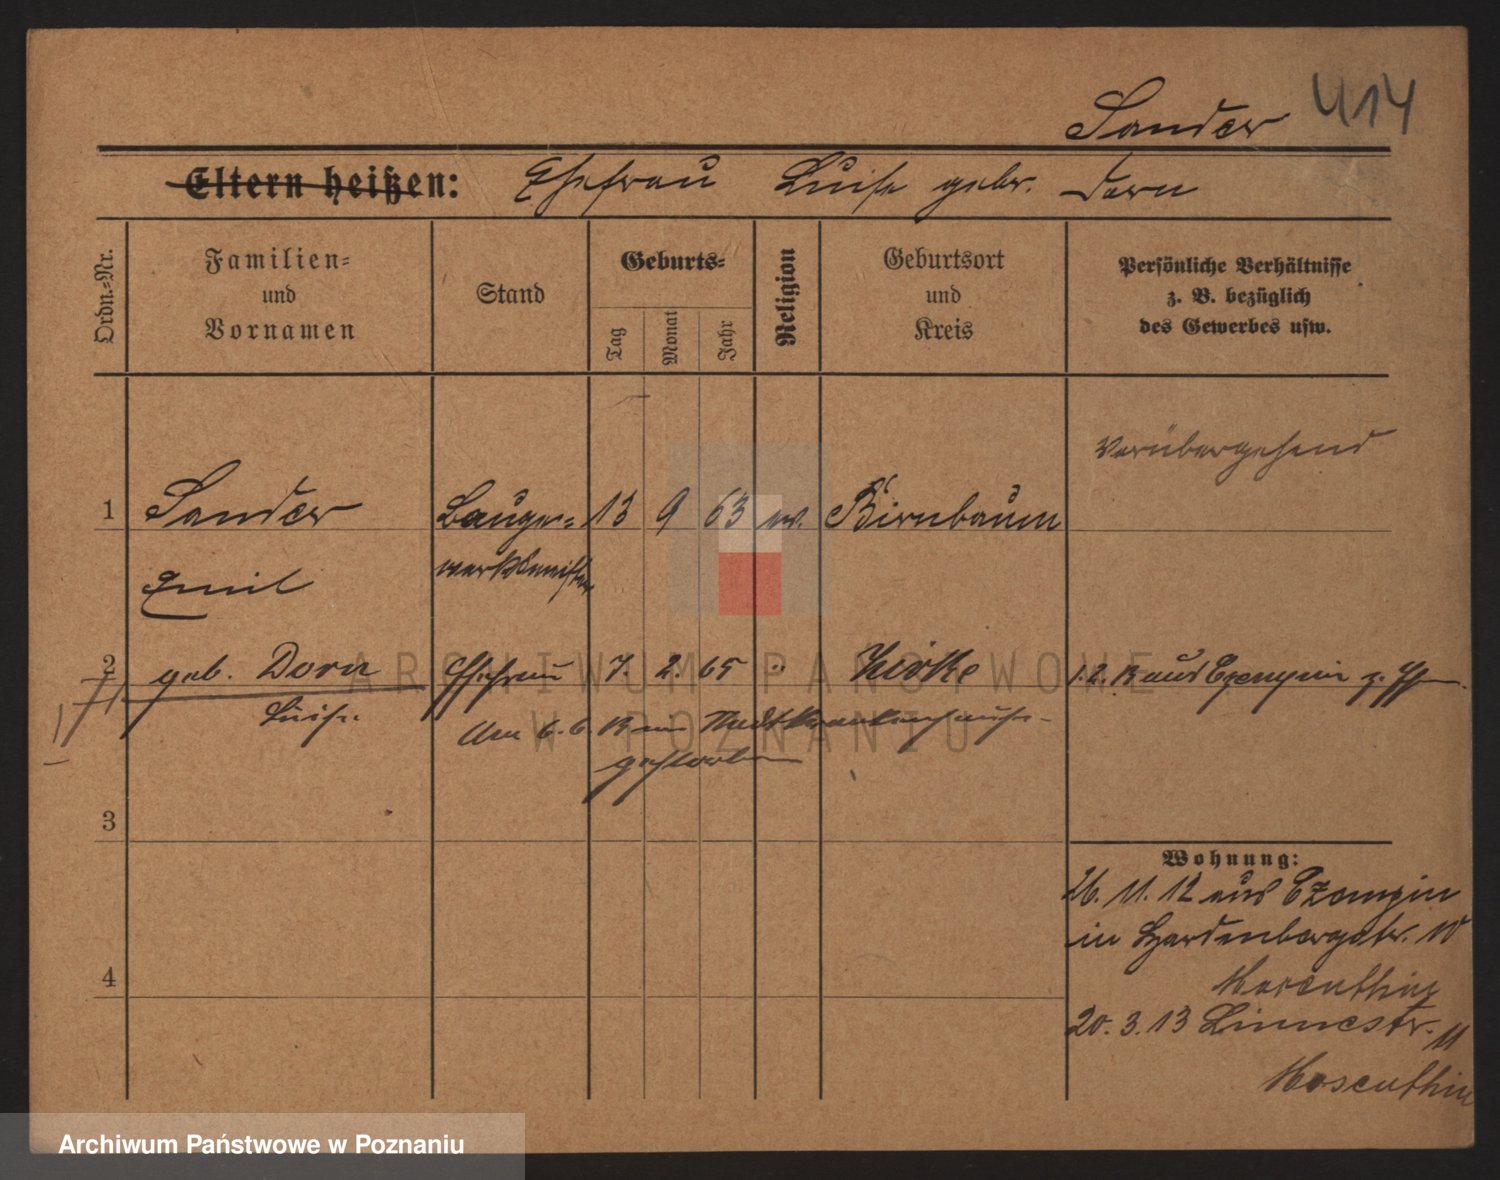 Sander 414
Eltern heißen: Ehefrau Luise gebr. Dorn
Ordn.-Nr.
Familien-
und
Vornamen
Stand
Geburts-
Tag
Monat
Jahr
Religion
Geburtsort
und
Kreis
Persönliche Verhältnisse
z. B. bezüglich
des Gewerbes usw.
vorübergehend
1 Sander Bauge- 13 9 63 ev. Birnbaum
Emil werksmeister
2 geb. Dorn Ehefrau 7. 2. 65 " 1.2.13 aus Czempin
Luise Am 6.6.13 im Stadtkrankenhause
gestorben
3
Wohnung:
26. 11. 12 aus Czempin
in Hardenbergstr. 10
4
20. 3. 13 Linnestr. 11
ARCHIWUM PAŃSTWOWE
W POZNANIU
Archiwum Państwowe w Poznaniu